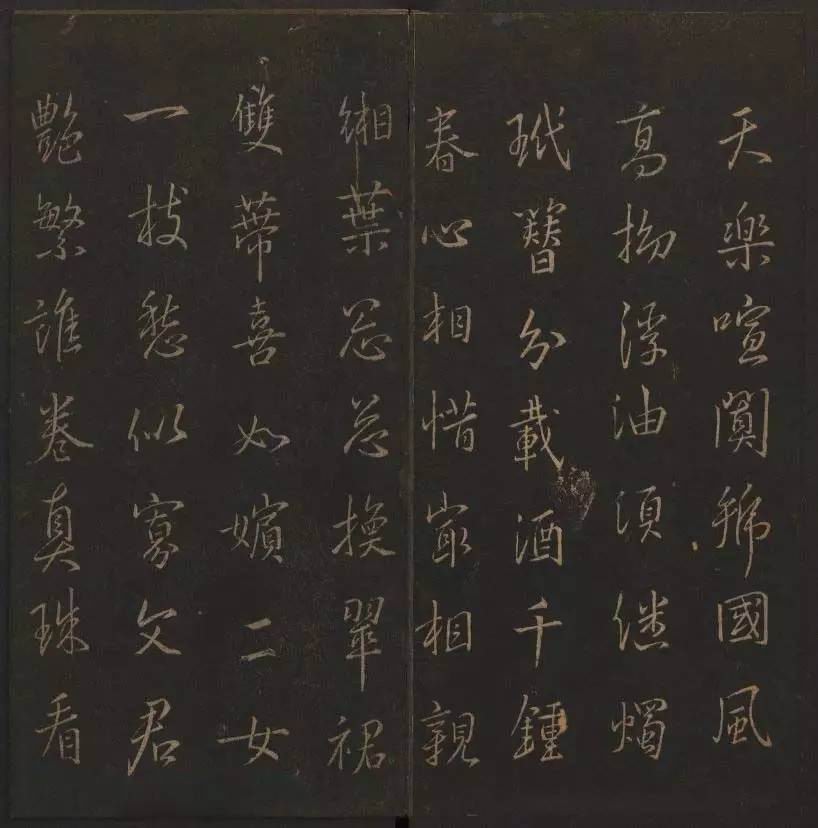 天樂喧闐國風
高浮油須继燭
玳簪分載酒千鍾
春心相惜㝡相親
緗葉忩忩換翠裙
雙蒂喜如嬪二女
一枝愁似寡文君
艷繁誰卷真珠看